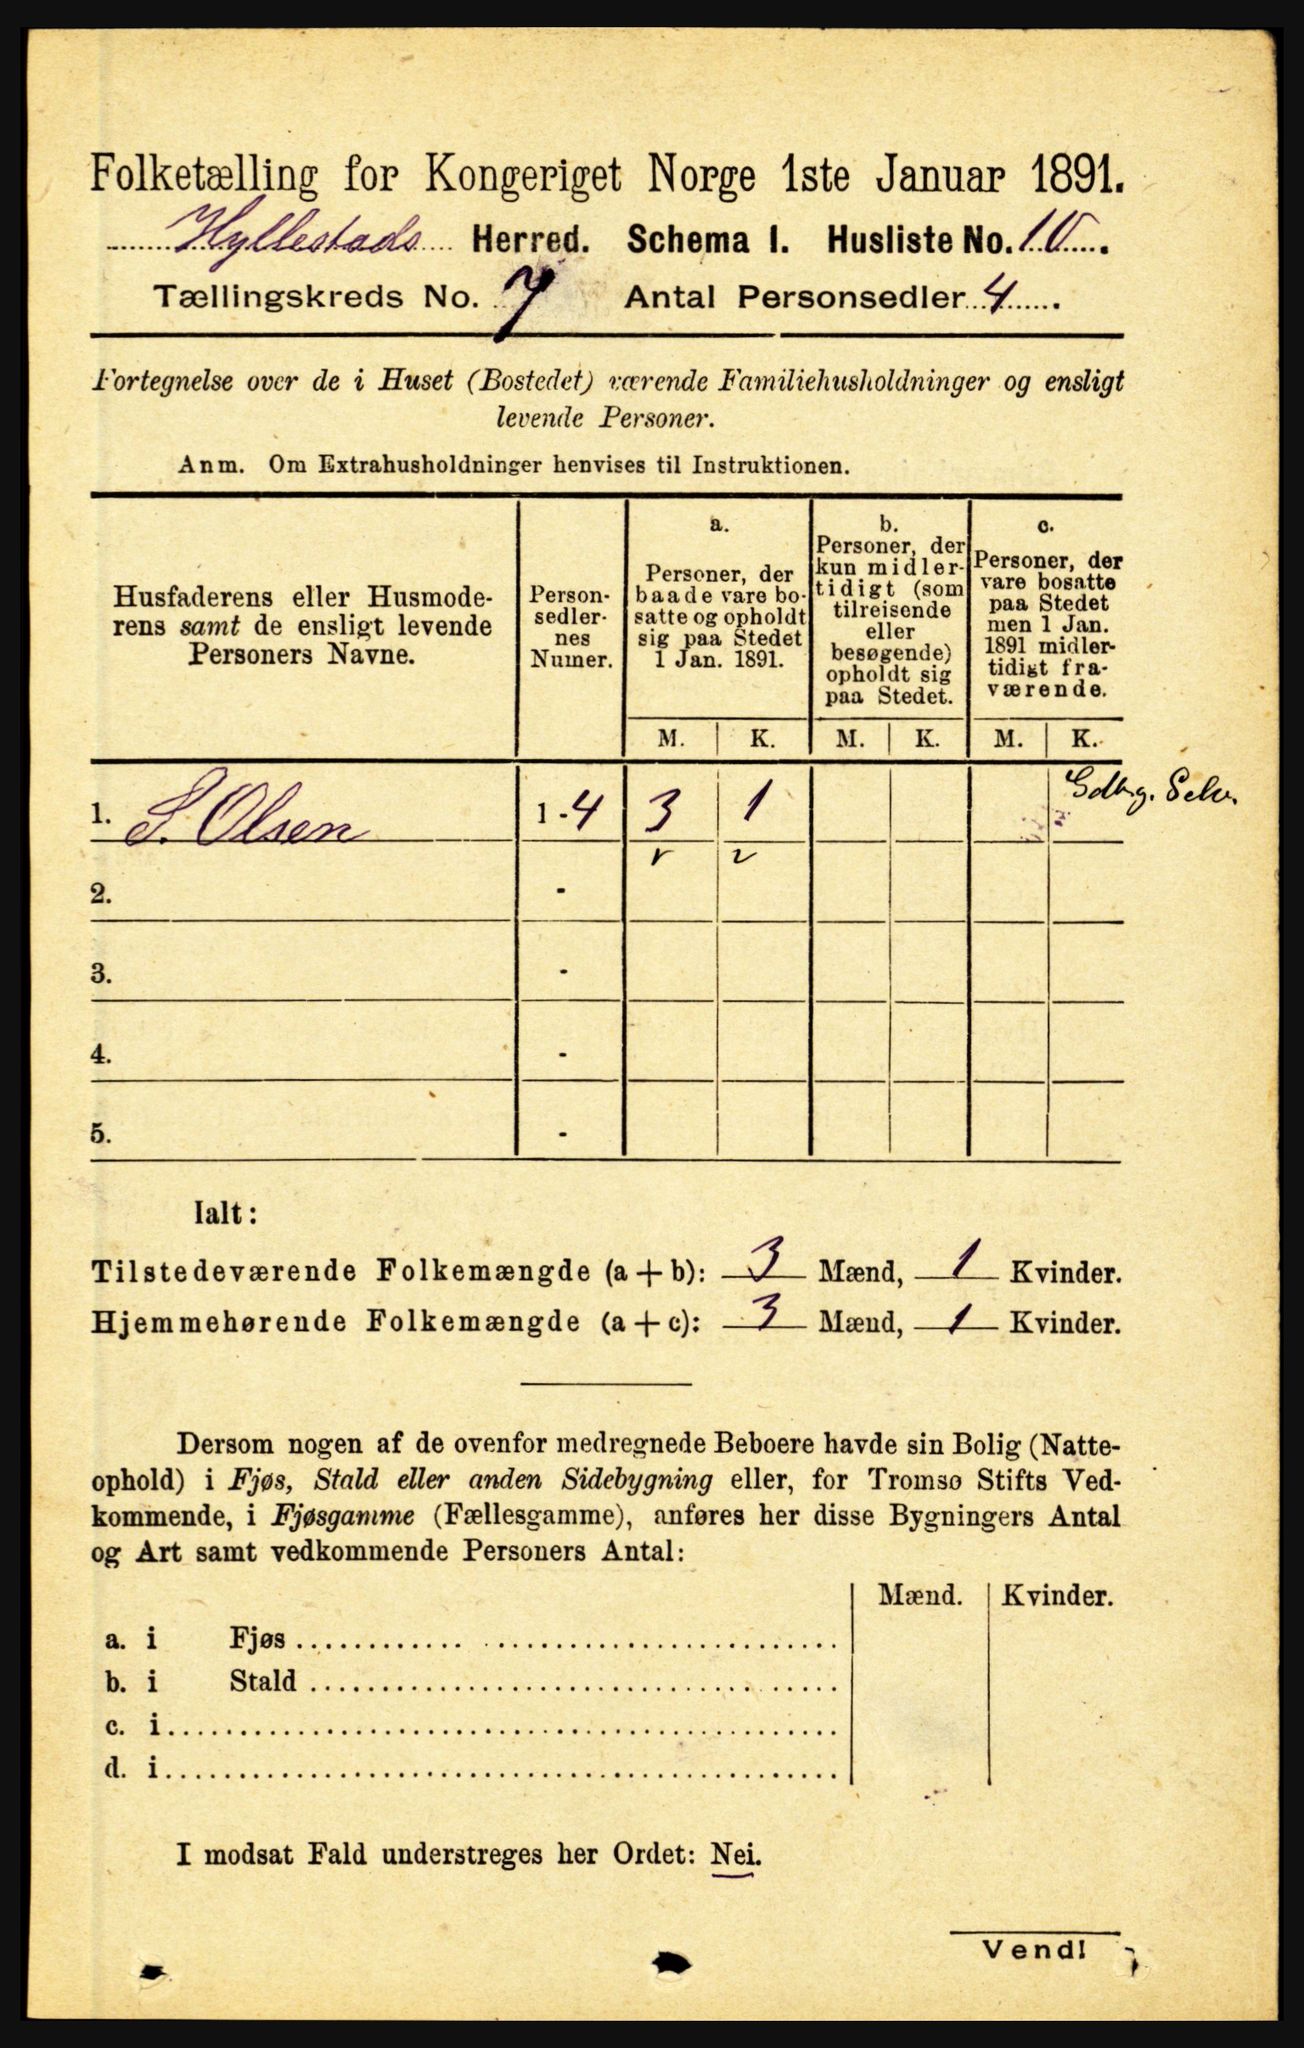 Folketælling for Kongeriget Norge 1ste Januar 1891.
Hyllestads Herred. Schema I. Husliste No. 10.
Tællingskreds No. 7 Antal Personsedler 4.
Fortegnelse over de i Huset (Bostedet) værende Familiehusholdninger og ensligt
levende Personer.
Anm. Om Extrahusholdninger henvises til Instruktionen.
Husfaderens eller Husmode-
rens samt de ensligt levende
Personers Navne.
Person-
sedler-
nes
Numer.
a.
Personer, der
baade vare bo-
satte og opholdt
sig paa Stedet
1 Jan. 1891.
b.
Personer, der
kun midler-
tidigt (som
tilreisende
eller
besøgende)
opholdt sig
paa Stedet.
c.
Personer, der
vare bosatte
paa Stedet
men 1 Jan.
1891 midler-
tidigt fra-
værende.
M. K. M. K. M. K.
1. S. Olsen 1-4 3 1
2. -
3. -
4. -
5. -
Ialt:
Tilstedeværende Folkemængde (a+b): 3 Mænd, 1 Kvinder.
Hjemmehørende Folkemængde (a+c): 3 Mænd, 1 Kvinder.
Dersom nogen af de ovenfor medregnede Beboere havde sin Bolig (Natte-
ophold) i Fjøs, Stald eller anden Sidebygning eller, for Tromsø Stifts Ved-
kommende, i Fjøsgamme (Fællesgamme), anføres her disse Bygningers Antal
og Art samt vedkommende Personers Antal:
Mænd. Kvinder.
a. i Fjøs
b. i Stald
c. i
d. i
I modsat Fald understreges her Ordet: Nei.
Vend!